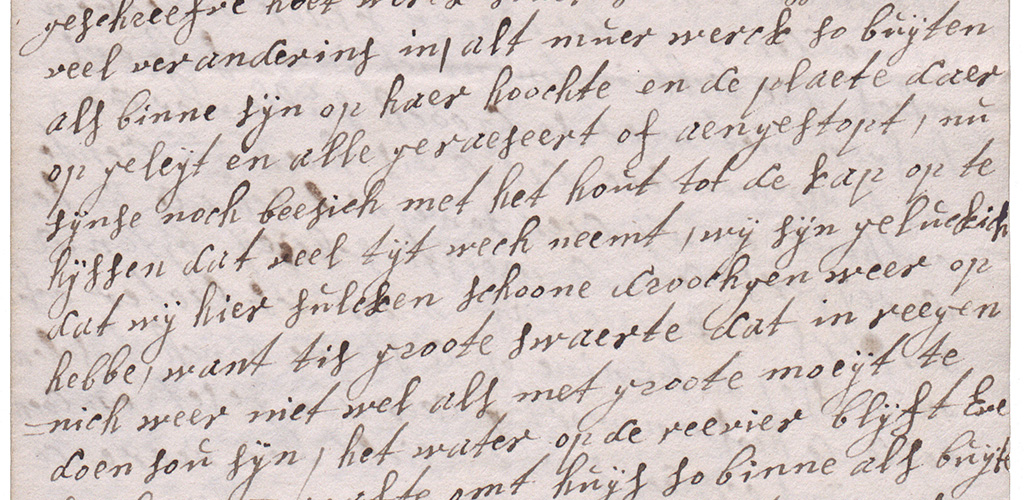 veel veranderins in, alt muer werck so buÿten
als binne sÿn op haer hoochte en de plaete daer
op geleÿt en alle geraeseert of aengestopt, nu
sÿnse noch beesich met het hout tot de kap op te
hÿssen dat veel tÿt wech neemt, wÿ sÿn geluckich
dat wÿ hier sulcken schoone droochgen weer op
hebbe, want tis groote swaerte dat in reegen
nich weer niet wel als met groote moeÿt te
doen sou sÿn, het water op de reevier blÿft
omt huÿs so binne als buÿte